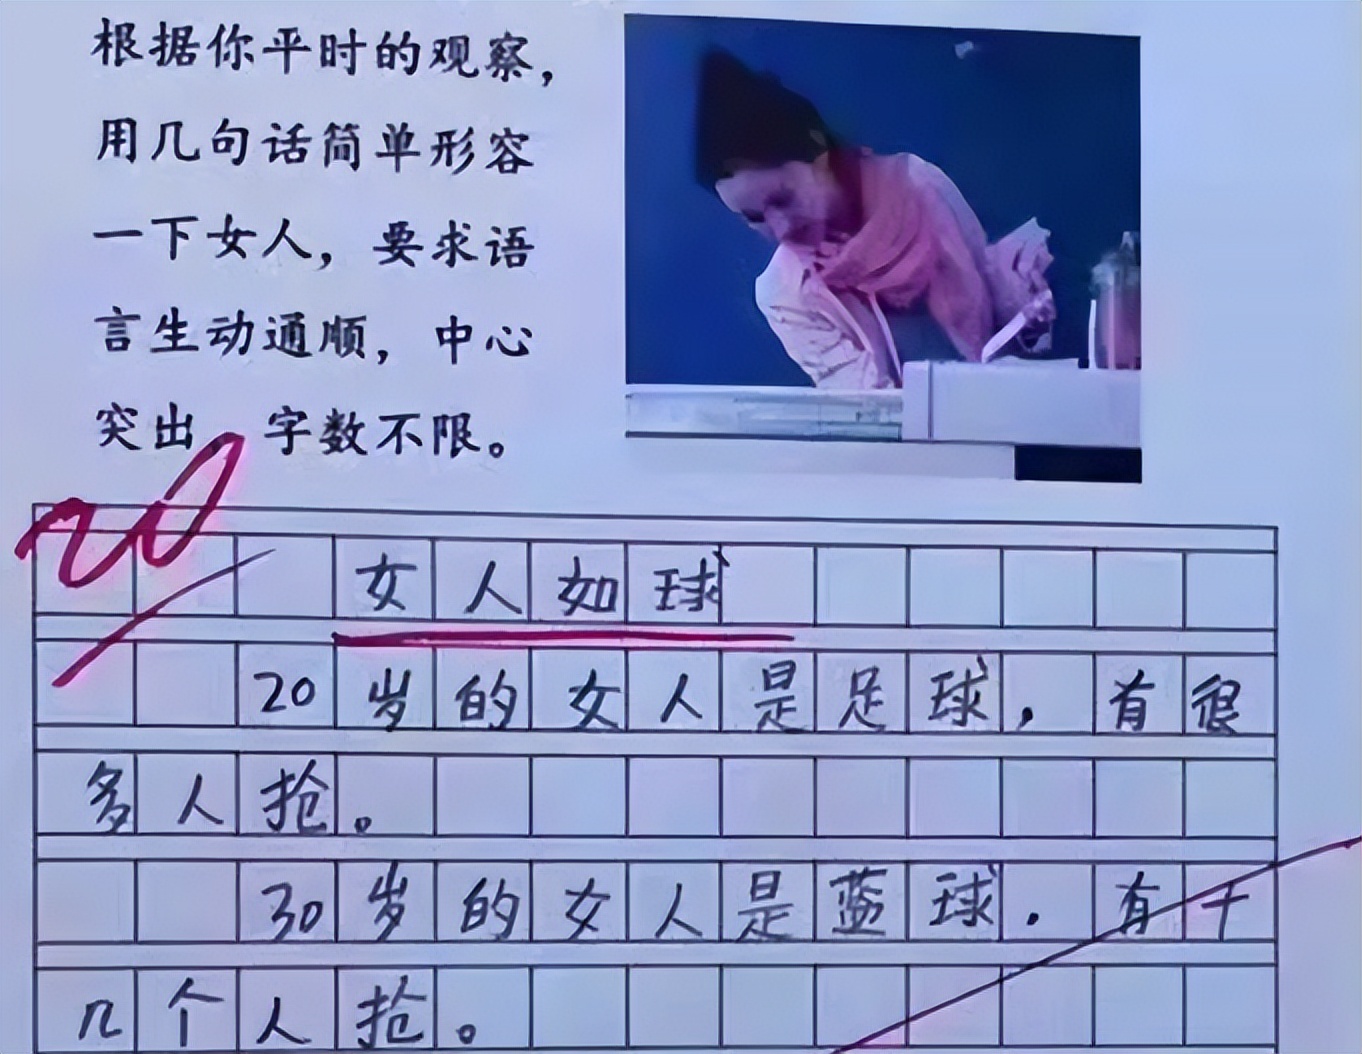 根据你平时的观察，
用几句话简单形容
一下女人，要求语
言生动通顺，中心
突出，字数不限。
20
女人如球
20岁的女人是足球，有很
多人抢。
30岁的女人是蓝球．有十
几个人抢。